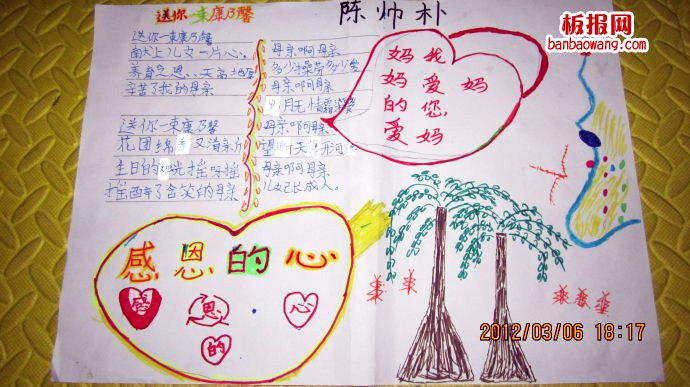 送你一束康乃馨
陈帅朴
板报网
banbaowang.com
送你一束康乃馨
献上儿女一片心。
养育之恩、天高地厚
辛苦了我的母亲
送你一束康乃馨
花团绵秀又清
生日的烛光摇呀摇
摇醉了含笑的母亲
母亲啊母亲
多少操劳多少爱
母亲啊母亲
月无情霜染
母亲啊母亲
望断天涯形可
母亲啊母亲
儿女已长成人。
妈妈的爱
我爱您妈
妈
感恩的心
感 恩 的 心
2012/03/06 18:17